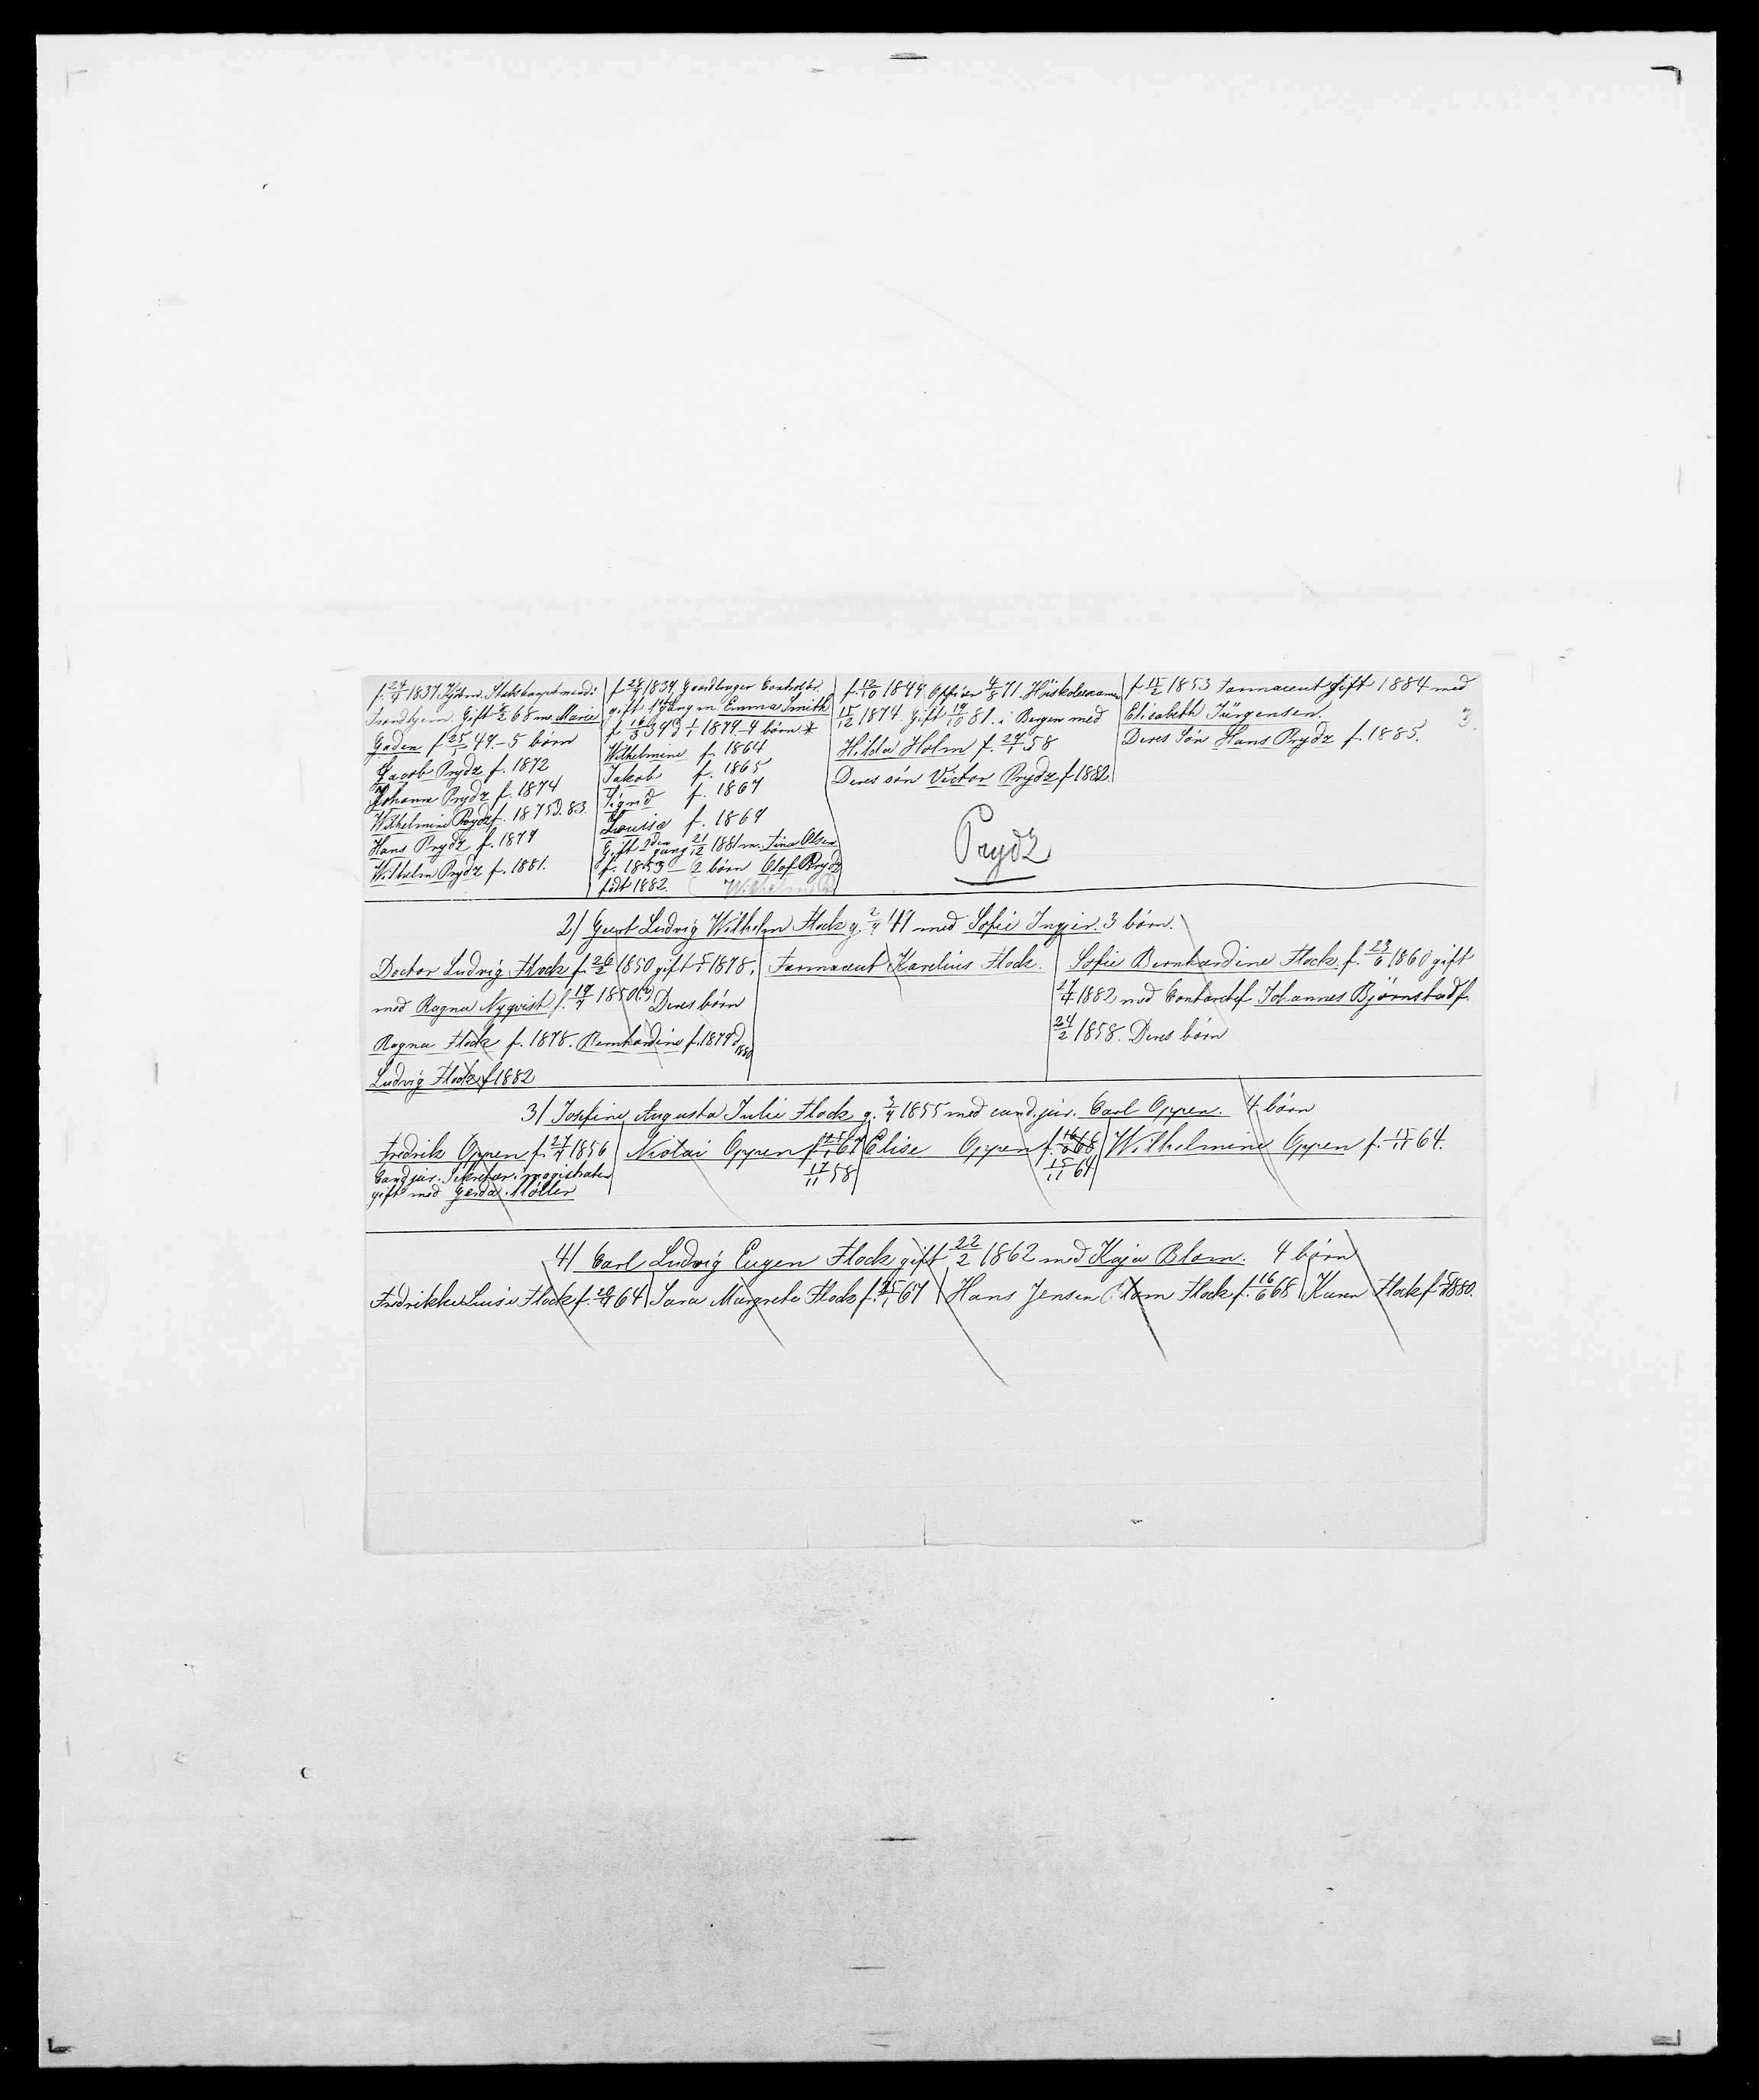 f. 24/4 1837 Kjøbm.
Trondhjem. Gift 68 m. Marie
Gaden f. 25/5 49 - 5 børn
Jacob Prydz f. 1872
Johann Prydz f. 1874
Wilhelmine Prydz f. 1875 D. 83.
Hans Prydz f. 1879
Wilhelm Prydz f. 1881.
f. 1839 Gaardbruger
gift 1ste gang m. Emma Smith
1879 - 4 børn *
Wilhelmine f. 1864
Jakob f. 1865
Sigrid f. 1867
Louise f. 1869
Gift 2den gang 21/12 1881 m. Tina Olsen
f. 1853 - 2 børn Olaf Prydz
født 1882. Wilhelm P
f. 12/10 1849 Officier 4/8 71.
15/12 1874. Gift 19/10 81. i Bergen med
Hilda Holm f. 58
Deres søn Victor Prydz f 1882.
f. 15/2 1853 Farmaceut gift 1884 med
Elisabeth Jürgensen.
Deres Søn Hans Prydz f. 1885.
3.
Prydz
2) Geert Ludvig Wilhelm Flock g. 2/9 49 med Sofie Ingier. 3 børn.
Doctor Ludvig Flock f. 26/2 1850 gift 1878.
med Ragna Nyqvist f. 1850(?) Deres børn
Ragna Flock f. 1878. Bernhardine f. 1879 d. 1880
Ludvig Flock f 1882
Farmaceut Karelius Flock.
Sofie Bernhardine Flock. f. 23/6 1860 gift
1882 med Contorchef Johannes Bjørnstad f.
24/2 1858. Deres børn
3) Josefine Augusta Julie Flock g. 3/9 1855 med cand. jur. Carl Oppen. 4 børn
Fredrik Oppen f. 27/7 1856
Cand jur. Sekretær i magistraten
gift med Gerda Møller
Nicolai Oppen f. 25/1 67
17/11 58
Elise Oppen f. 16/6 68
15/11 61
Wilhelmine Oppen f. 15/11 64.
4) Carl Ludvig Eugen Flock gift 22/2 1862 med Kaja Blom. 4 børn
Fredrikke Luise Flock f. 64 | Sara Margrete Flock f. 25/1 67 | Hans Jensen Blom Flock f. 16/6 68 | Karen Flock f 1880.